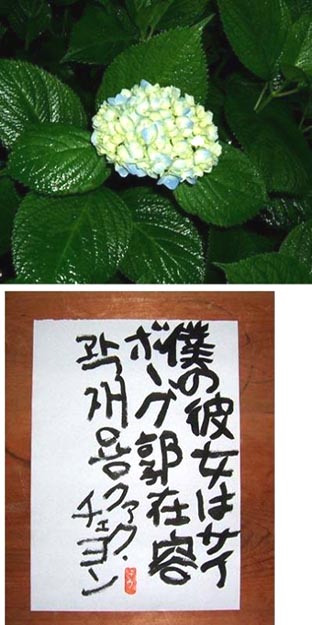 僕の彼女はサイ
ボーグ郭在容
곽재용クァク・
チェヨン